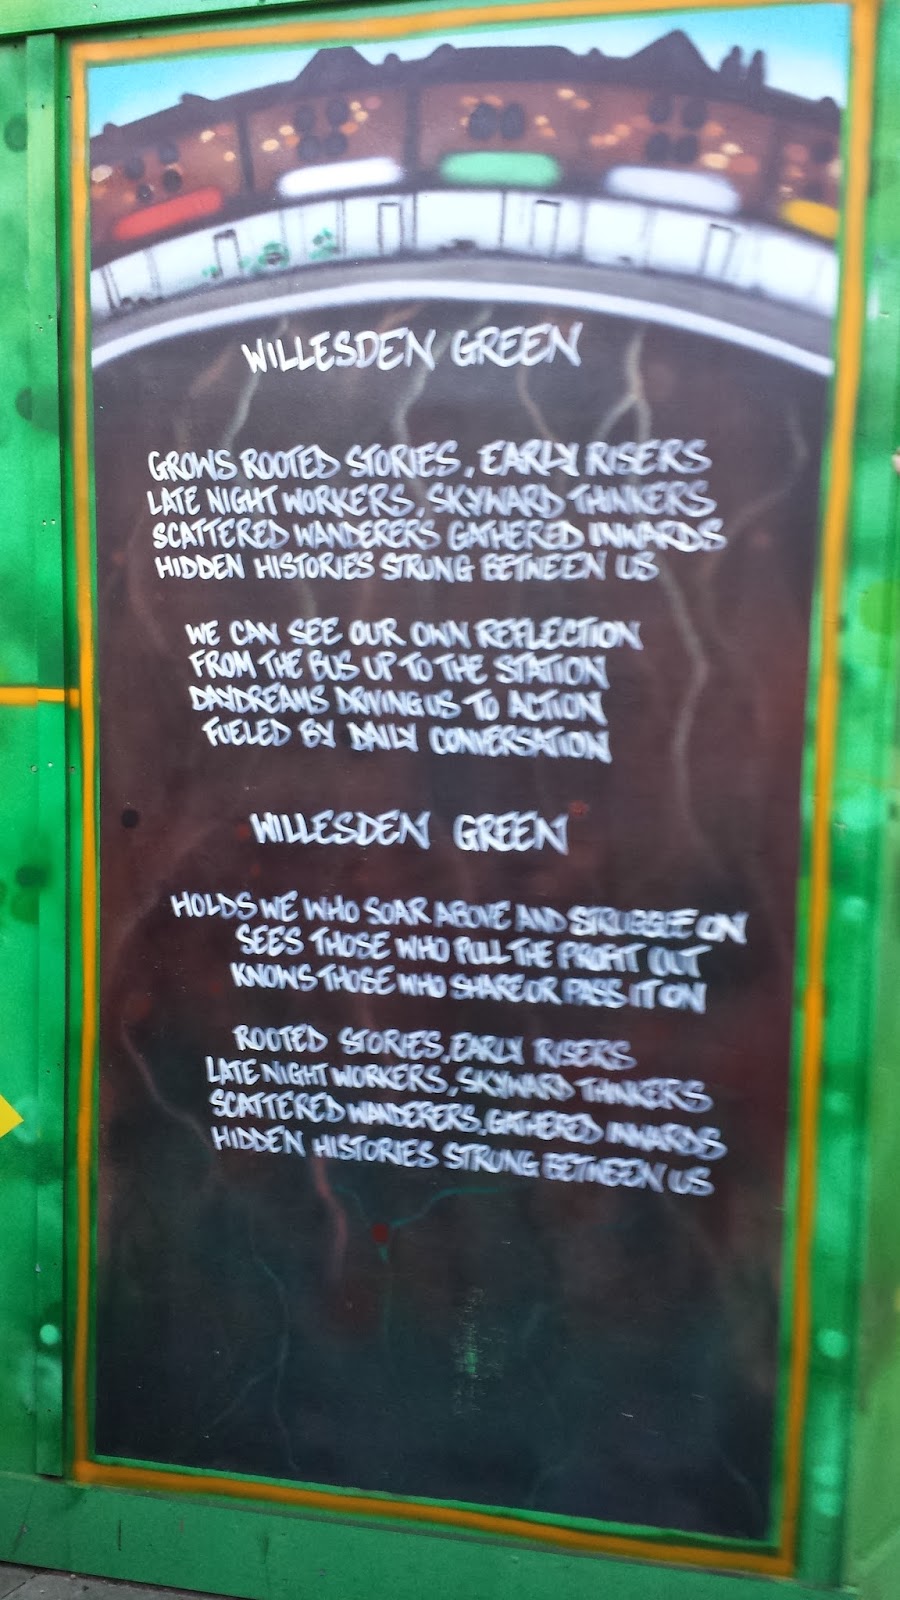 WILLESDEN GREEN
GROWS ROOTED STORIES, EARLY RISERS
LATE NIGHT WORKERS, SKYWARD THINKERS
SCATTERED WANDERERS GATHERED INWARDS
HIDDEN HISTORIES STRUNG BETWEEN US
WE CAN SEE OUR OWN REFLECTION
FROM THE BUS UP TO THE STATION
DAYDREAMS DRIVING US TO ACTION
FUELED BY DAILY CONVERSATION
WILLESDEN GREEN
HOLDS WE WHO SOAR ABOVE AND STRUGGLE ON
SEES THOSE WHO PULL THE PROFIT OUT
KNOWS THOSE WHO SHARE OR PASS IT ON
ROOTED STORIES, EARLY RISERS
LATE NIGHT WORKERS, SKYWARD THINKERS
SCATTERED WANDERERS, GATHERED INWARDS
HIDDEN HISTORIES STRUNG BETWEEN US